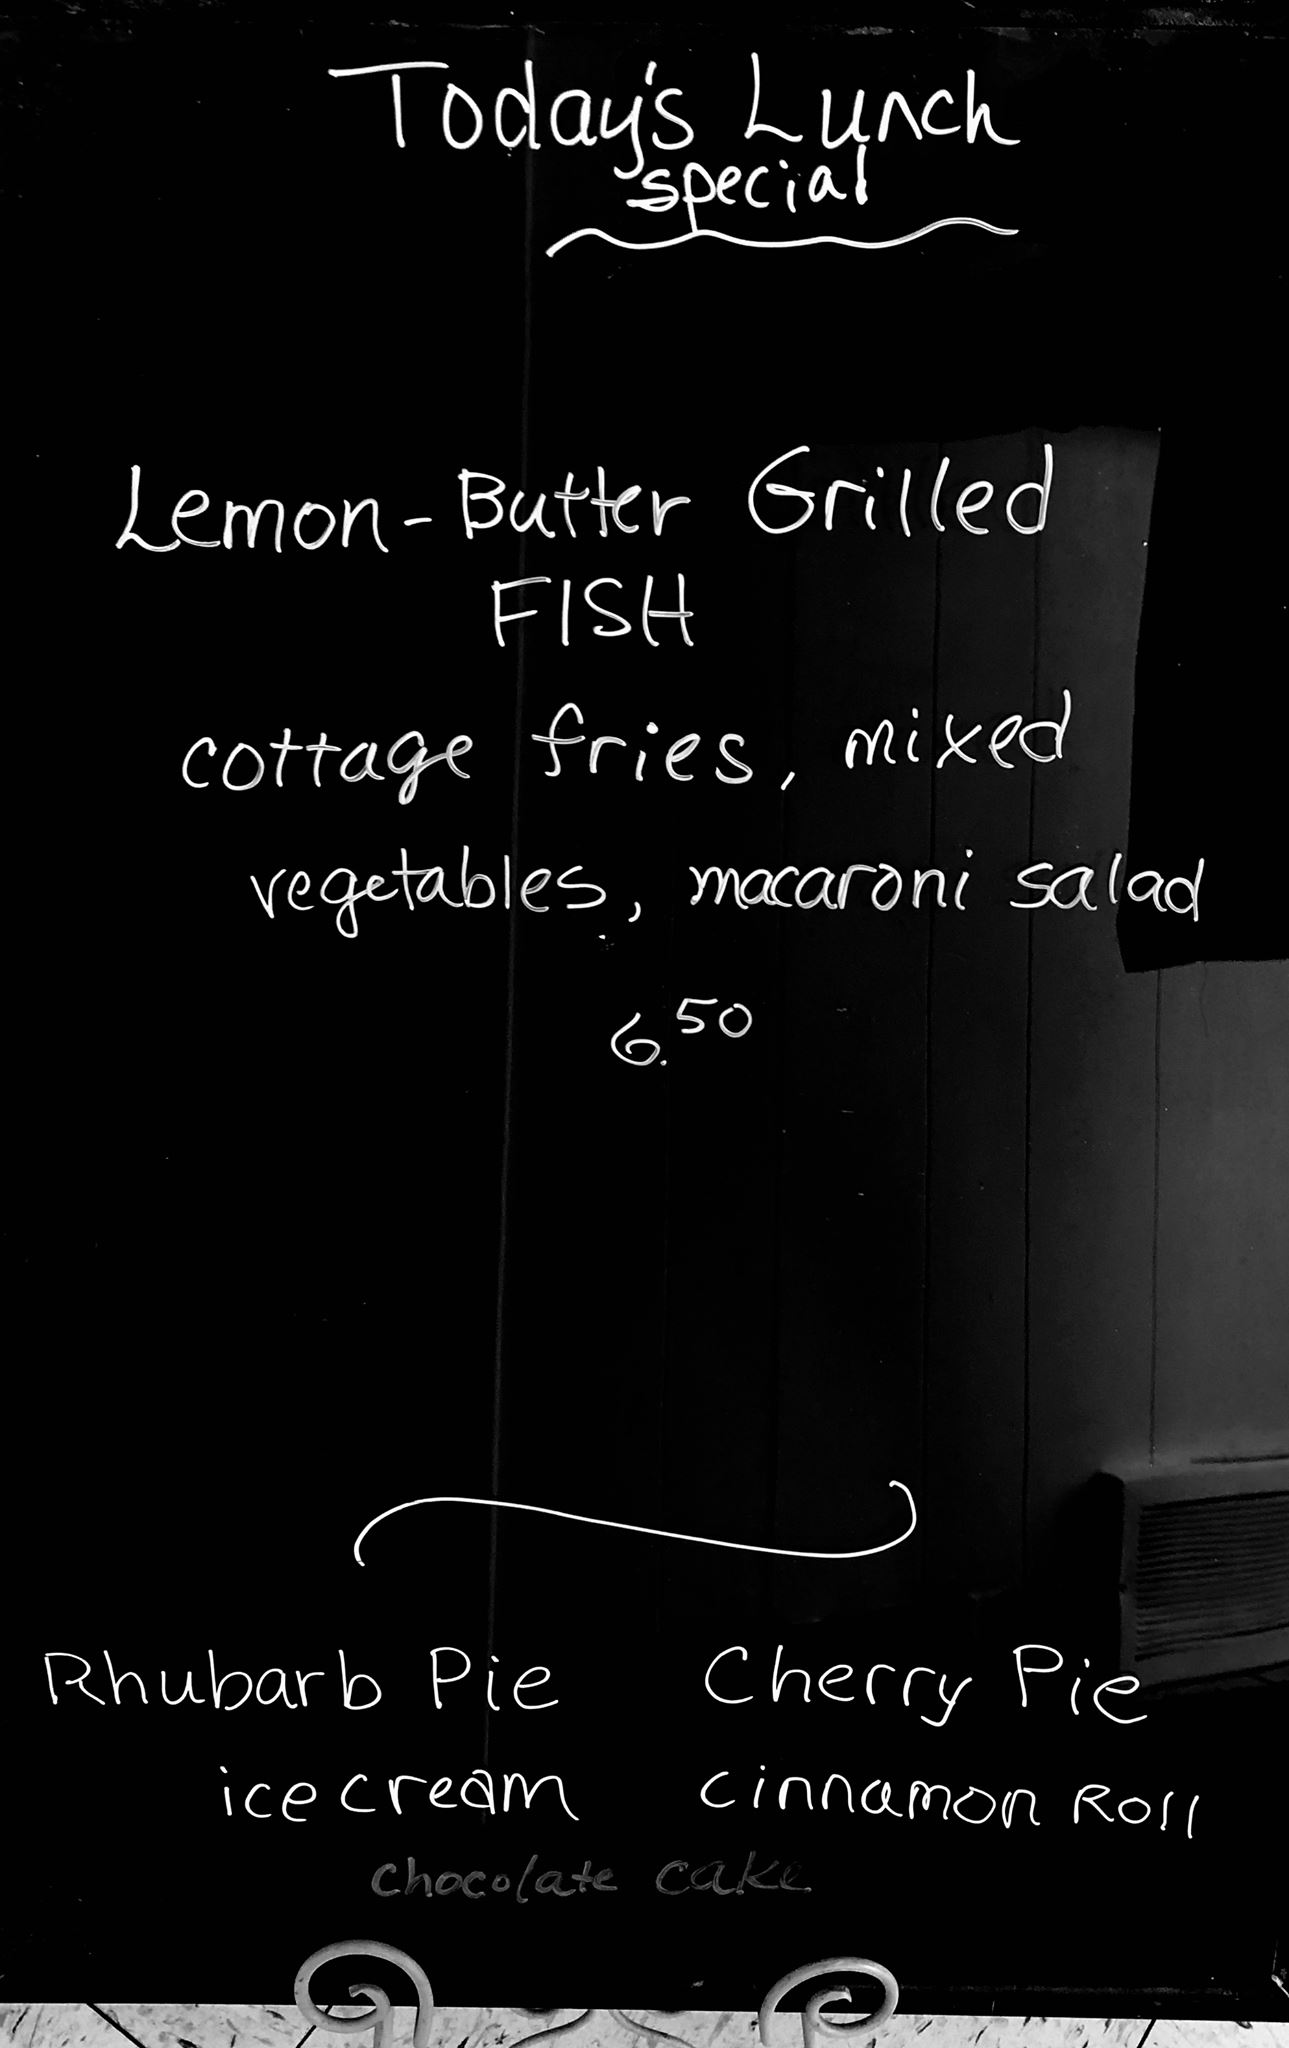 Today's Lunch
special
Lemon-Butter Grilled
FISH
cottage fries, mixed
vegetables, macaroni salad
6.50
Rhubarb Pie Cherry Pie
ice cream cinnamon Roll
chocolate cake